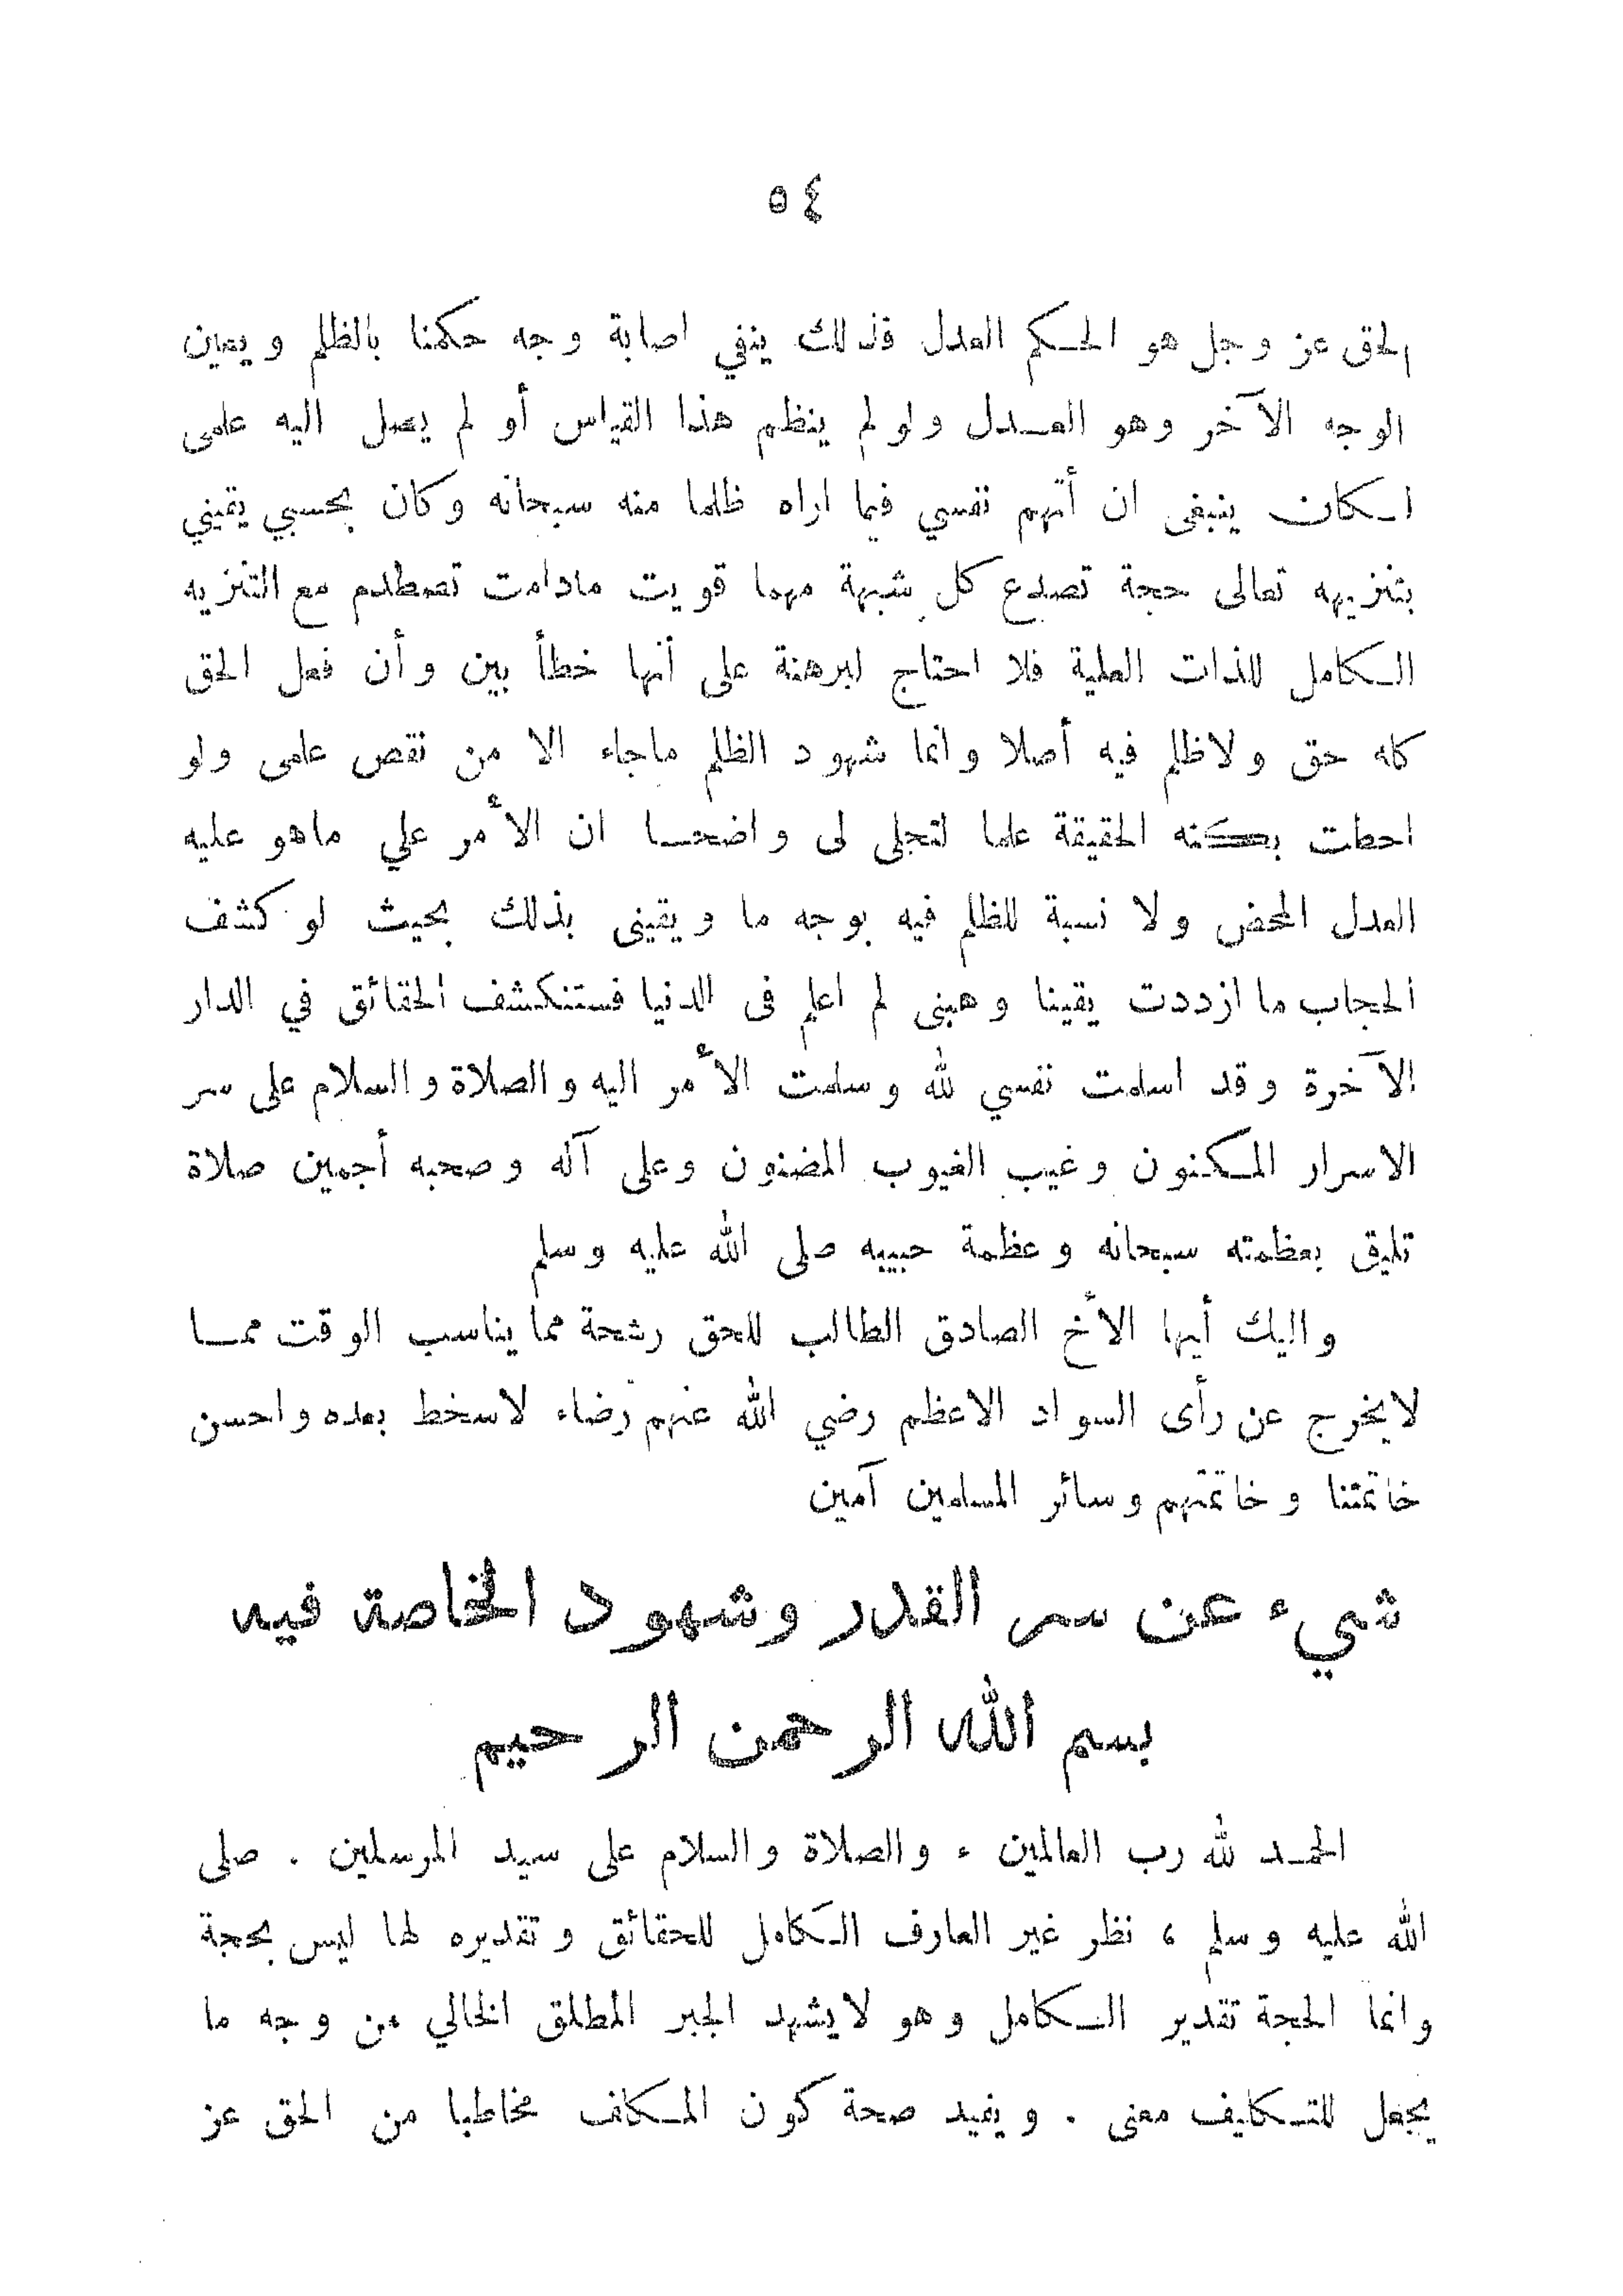 ٥٤
الحق عز وجل هو الحكم العدل فذلك ينفي اصابة وجه حكمنا بالظلم ويعين
الوجه الآخر وهو العدل ولو لم ينظم هذا القياس أو لم يصل اليه علمى
لكان ينبغى ان أتهم نفسي فيما اراه ظلما منه سبحانه وكان بحسبي يقيني
بتنزيهه تعالى حجة تصدع كل شبهة مهما قويت مادامت تصطدم مع التنزيه
الكامل للذات العلية فلا احتاج لبرهنة على أنها خطأ بين وأن فعل الحق
كله حق ولاظلم فيه أصلا وانما شهود الظلم ماجاء الا من نقص علمى ولو
احطت بكنه الحقيقة علما لتجلى لى واضحا ان الأمر علي ماهو عليه
العدل المحض ولا نسبة للظلم فيه بوجه ما ويقينى بذلك بحيث لو كشف
الحجاب ما ازددت يقينا وهبنى لم اعلم فى الدنيا فستنكشف الحقائق في الدار
الآخرة وقد اسلمت نفسي لله وسلمت الأمر اليه والصلاة والسلام على سر
الاسرار المكنون وغيب الغيوب المضنون وعلى آله وصحبه أجمعين صلاة
تليق بعظمته سبحانه وعظمة حبيبه صلى الله عليه وسلم
واليك أيها الأخ الصادق الطالب للحق رشحة مما يناسب الوقت مما
لايخرج عن رأى السواد الاعظم رضي الله عنهم رضاء لاسخط بعده واحسن
خاتمتنا وخاتمتهم وسائر المسلمين آمين
شيء عن سر القدر وشهود الخاصة فيه
بسم الله الرحمن الرحيم
الحمد لله رب العالمين ، والصلاة والسلام على سيد المرسلين . صلى
الله عليه وسلم ، نظر غير العارف الكامل للحقائق وتقديره لها ليس بحجة
وانما الحجة تقدير الكامل وهو لايشهد الجبر المطلق الخالي من وجه ما
يجعل للتكليف معنى . ويفيد صحة كون المكلف مخاطبا من الحق عز